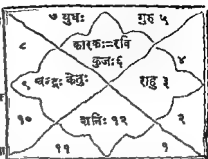 ७ बुधः
गुरु ५
कारकः=रवि
कुजः ६
८
४
९
चन्द्रः केतुः
राहु ३
शनिः १२
१०
२
११
१